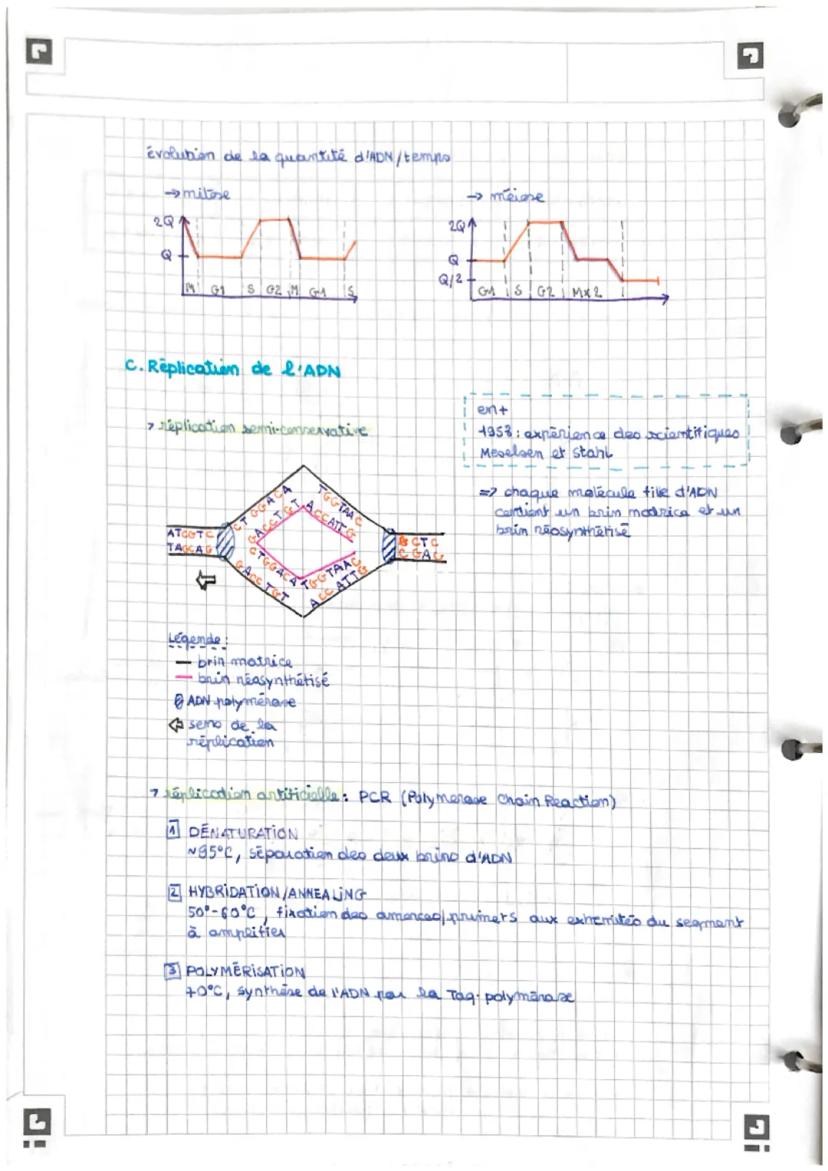 évolution de la quantité d'ADN/temps
→ mitose
2Q
Q
M G1 S G2 M G1 S
→ méiose
2Q
Q
Q/2
G1 S G2 M x 2
C. Réplication de l'ADN
> réplication semi-conservative
en +
1958 : expérience des scientifiques
Meselsen et Stahl
=> chaque molécule fille d'ADN
contient un brin matrice et un
brin néosynthétisé
CTGGACA TGGTAAC
GACCTGT ACCATTG
ATCGTC
TAGCAG
GCTC
CGAG
CTGGACA TGGTAAC
GACCTGT ACCATTG
Légende :
brin matrice
brin néosynthétisé
ADN polymérase
sens de la
réplication
> réplication artificielle : PCR (Polymerase Chain Reaction)
1 DÉNATURATION
~95°C, séparation des deux brins d'ADN
2 HYBRIDATION/ANNEALING
50°-60°C, fixation des amorces/primers aux extrémités du segment
à amplifier
3 POLYMÉRISATION
70°C, synthèse de l'ADN par la Taq-polymérase